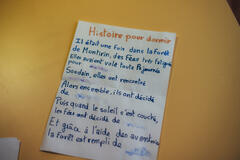 Histoire pour dormir
Il était une fois dans la Forêt
de Montirin, des Fées très fatiguées
Elles avaient volé toute la journée
Soudain, elles ont rencontré
Alors ensemble, ils ont décidé
de
Puis quand le soleil s'est couché,
les fées ont décidé de
Et grâce à l'aide des
la forêt est rempli de